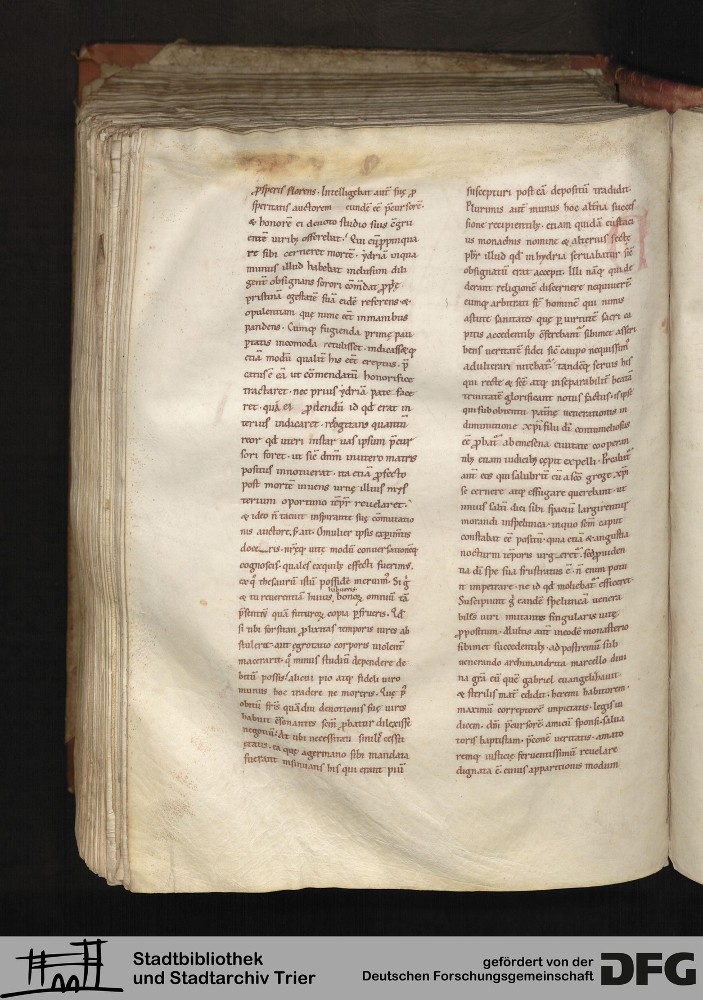 ꝓsperis florens. Intelligebat aut̄ suę ꝓ
speritatis auctorem eundē eē p̄cursorē.
& honorē ei deuoto studio suis cōgru
entē uirib; offerebat. Qui cū ꝓpinqua
re sibi cerneret mortē. ydriā inqua
munus illud habebat inclusum dili
gent̄ obsignans sorori cōm̄dat. ꝓpriā
pristinā egestatē suā eidē referens. &
opulentiam quę nunc eēt in manibus
pandens. Cumq; fugienda primę pau
ptatis incomoda retulisset. indicassetq;
etiā modū qualit̄ his eēt ereptus. p̄
catus ē eā ut cōmendatū honorifice
tractaret. nec prius ydriā pate face
ret. quā ei ꝓdendū id qd̄ erat in
terius indicaret. Rogitans quantū
reor qd̄ uteri instar uas ipsum p̄cur
sori foret. ut sic̄ dn̄m inutero matris
positus innotuerat. ita etiā ꝓfecto
post mortē uiuens urnę illius mys
terium oportuno tēpr̄ reuelaret.
& ideo n̄ tacuit inspirante suę cōmutatio
nis auctore. s; ait. O mulier ipsis expim̄tis
doceris. niq; uite modū conuersationēq;
cognoscis. quales exequiis effecti fuerims.
ex q̊ thesaurū istū possidē meruim;. Si g̊
& tu reuerentiā huius habueris. bonoꝝ omniū tā
p̄sentiū quā futuroꝝ copia p̄frueris. Qd̄
si tibi forsitan ꝓlixitas temporis uires ab
stulerit. aut egrotatio corporis uiolent̄
macerarit. q̊ minus studiū dependere de
bitū possis. alicui pio atq; fideli uiro
munus hoc tradere ne moreris. Quę p̊
obitū frīs quādiu deuotionis suę uires
habuit cōsonantes sem̄ ꝓbatur dilexisse
negotiū. At ubi necessitati simul ē cessit
ętatis. ea quę a germano sibi mandata
fuerant insinuans his qui erant pium
suscepturi post eā depositū tradidit.
Plurimis aut̄ munus hoc alt̄na succes
sione recipientib;. etiam quidā eustaci
us monachus nomine & alterius sectę
pb̄r illud qd̄ in hydria seruabatur sic̄
obsignatū erat accepit. Illi nāq; qui de
derant religionē discernere nequiuer̄t
eumq; arbitrati sc̄m̄ hominē qui nimis
astute sanitates quę p̄ uirtutē sacri ca
pitis accedentib; offerebant̄ sibimet asscri
bens ueritatē fidei sic̄ caupo nequissim̊
adulterari nitebat̄. tandēq; seruis his
qui recte & sc̄ē atq; inseparabilit̄ beatā
trinitatē glorificant notus factus. is ipse
qui sub obtentu patris uenerationis in
diminutione xp̄i filii dī contumeliosus
eē ꝓbat̄. ab emesena ciuitate cooperan
tib; etiam iudicib; cepit expelli. P̄cabat̄
aut̄ eos qui salubrit̄ eū a sc̄o grege xp̄i
se cernere atq; effugare querebant. ut
unius saltī diei sibi spaciū largirentur
morandi in spelunca. in quo sem̄ caput
constabat eē positū. quia etiā & angustia
nocturni tēporis urgeret.
na dī spe sua frustratus ē. n̄ enim potu
it impetrare. ne id qd̄ moliebat̄ efficeret.
Suscipiunt g̊ eandē speluncā uenera
biles uiri imitantes singularis uitę
ꝓpositum. Multis aut̄ in eodē monasterio
sibimet succedentib;. ad postremū sub
uenerando archimandrita marcello diui
na gr̄a eū quē gabriel euangelizauit
& sterilis mat̄ edidit. heremi habitorem.
maximū correptorē impietatis. legis iu
dicem. dn̄i p̄cursorē. amicū sponsi. salua
toris baptistam. p̄conē ueritatis. amato
remq; iusticię feruentissimū reuelare
dignata ē. cuius apparitionis modum
Stadtbibliothek
und Stadtarchiv Trier
gefördert von der
Deutschen Forschungsgemeinschaft
DFG